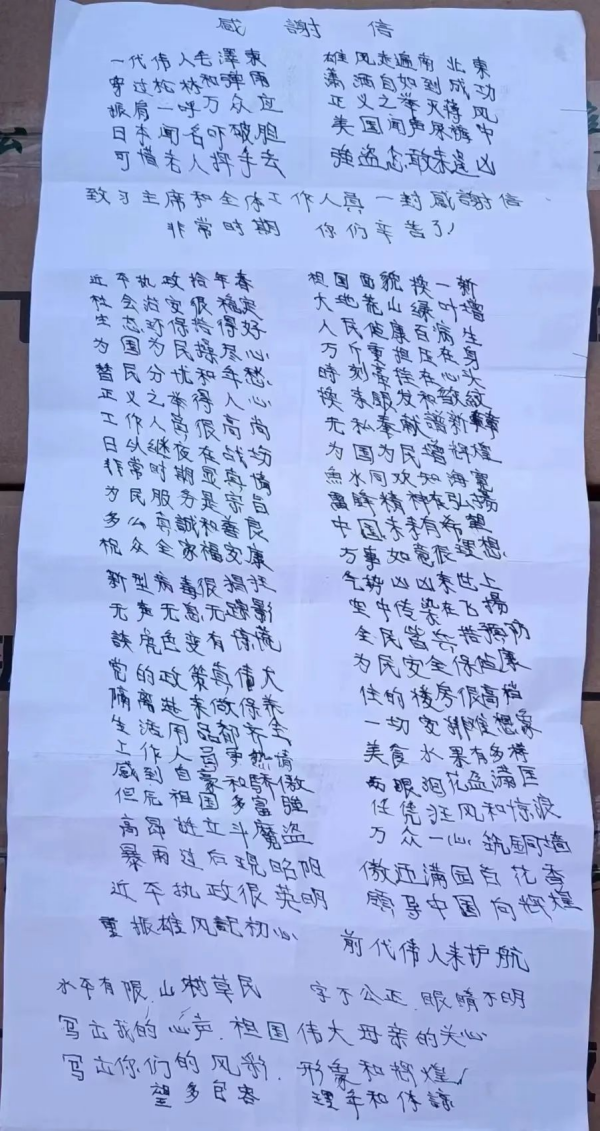 感 謝 信
一代偉人毛澤東 雄风走遍南北東
穿过松林和弹雨 潇洒自如到成功
振肩一呼万众应 正义之举灭得风
日本闻名吓破胆 美国闻声尿裤中
可惜老人挥手去 強盗怎敢来逞凶
致习主席和全体工作人員一封感謝信
非常时期 你们辛苦了!
近平执政拾年春 祖国面貌换一新
社会治安很稳定 大地荒山绿叶增
生态环保搭得好 人民健康百病生
为国为民操尽心 万斤重担压在身
替民分忧和年愁 時刻牵挂在心头
正义之举得人心 换来眼发和皱紋
工作人員很高尚 无私奉献譜新
日以继夜在战场 为国为民增辉煌
非常时期显真情 魚水同欢如海寬
为民服务是宗旨 雷鋒精神在弘揚
多么真誠和善良 中国未来有希望
祝众全家福安康 万事如意很理想
新型病毒很猖狂 气势凶凶来世上
无声无息无踪影 空中传染在飞揚
談虎色变有惊慌 全民皆兵搭预防
党的政策真偉大 为民安全保健康
隔离起来做保养 住的楼房很高档
生活用品都齐全 一切安排难想象
工作人員真热情 美食水果有多样
感到自豪和驕傲 眼泪花盈满匡
但愿祖国多富強 任凭狂风和惊浪
高昂挺立斗魔盗 万众一心筑銅墙
暴雨过后現昭阳 傲迊满园百花香
近平执政很英明 领导中国向辉煌
重振雄风記初心 前代偉人来护航
水平有限.山村草民 字不公正.眼睛不明
写出我的心声.祖国偉大母亲的关心
写出你们的风彩.形象和辉煌!
望多包容 理解和体諒